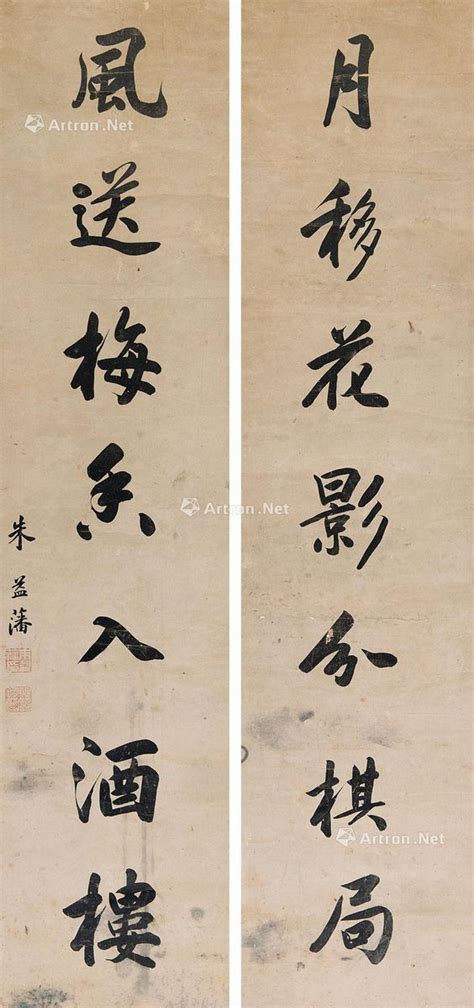 月移花影分棋局
風送梅香入酒樓
朱益藩
Artron.Net
Artron.Net
Artron.Net